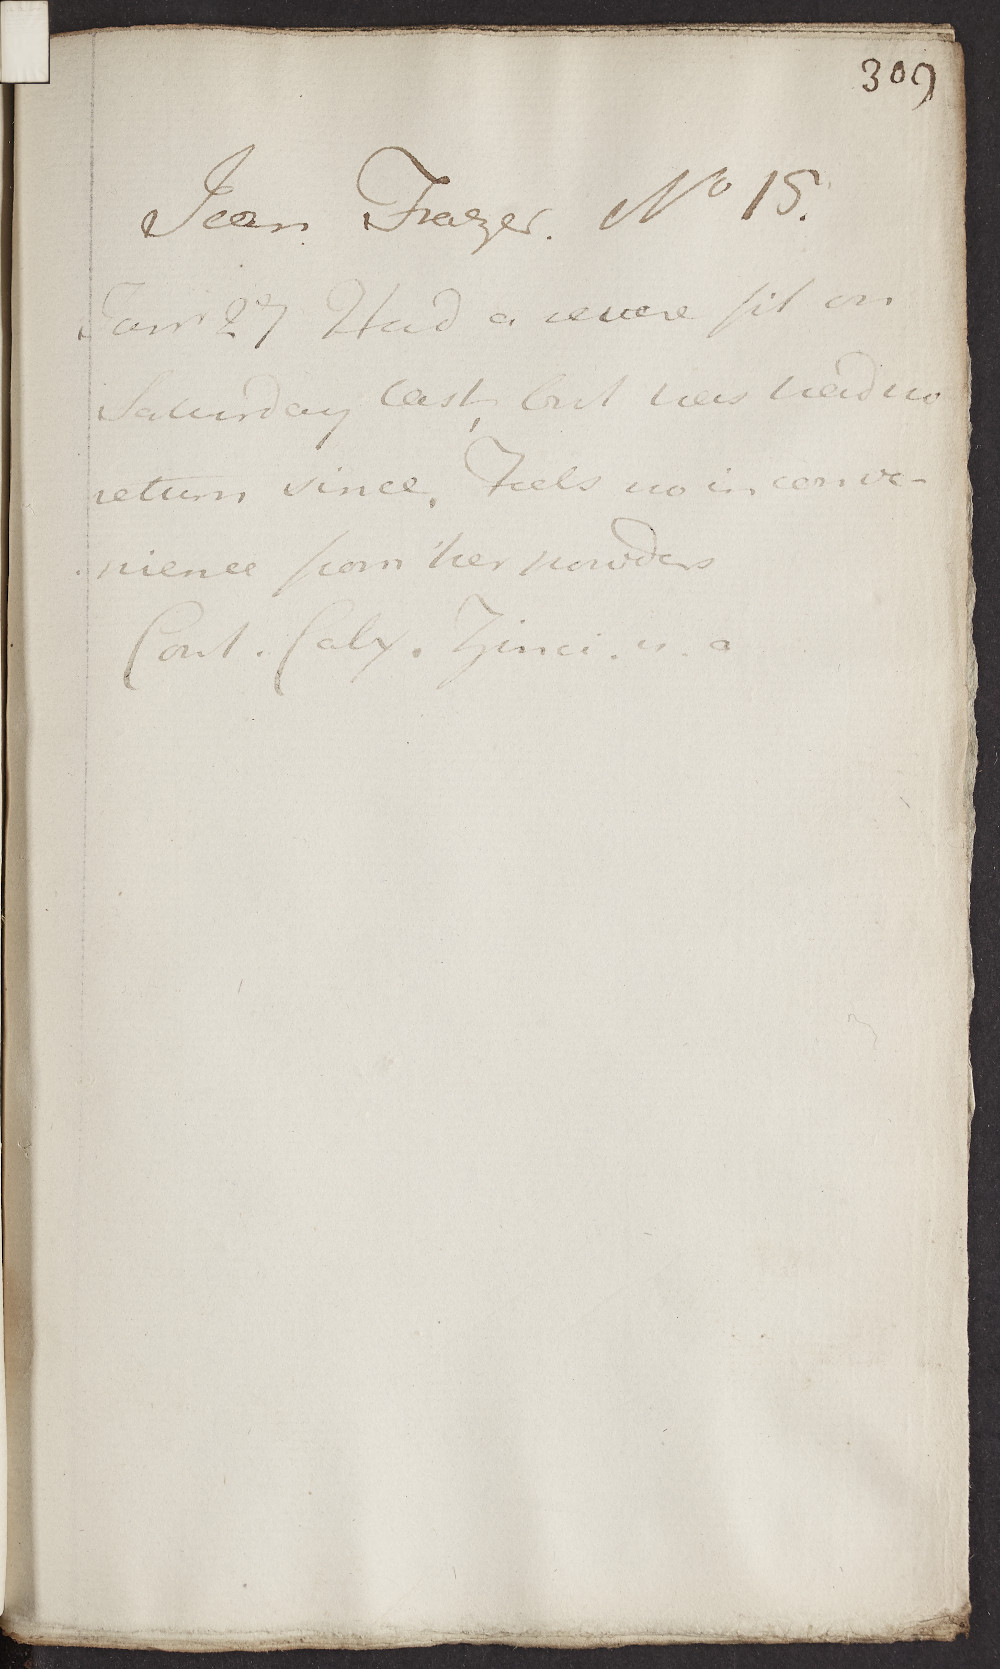 309
Jean Frazer. No 15.
Janr 27 Had a severe fit on
Saturday last, but has had no
return since. Feels no inconve-
nience from her powders
Cont. Calx. Zinci. u. a